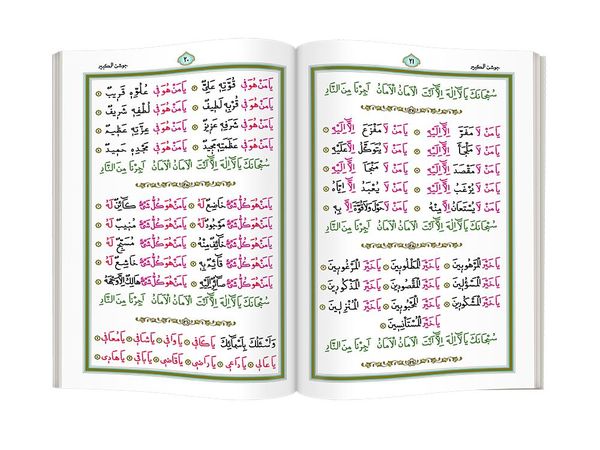 جوشن الكبير
٢٠
يَا مَنْ هُوَ في قُوَّتِهِ عَلِيٌّ ۞ يَا مَنْ هُوَ في عُلُوِّهِ قَرِيبٌ ۞
يَا مَنْ هُوَ في قُرْبِهِ لَطِيفٌ ۞ يَا مَنْ هُوَ في لُطْفِهِ شَرِيفٌ ۞
يَا مَنْ هُوَ في شَرَفِهِ عَزِيزٌ ۞ يَا مَنْ هُوَ في عِزَّتِهِ عَظِيمٌ ۞
يَا مَنْ هُوَ في عَظَمَتِهِ مَجِيدٌ ۞ يَا مَنْ هُوَ في مَجْدِهِ حَمِيدٌ ۞
سُبْحَانَكَ يَا لَا اِلٰهَ اِلَّا اَنْتَ الْاَمَانُ الْاَمَانُ اَجِرْنَا مِنَ النَّارِ
يَا مَنْ هُوَ كُلُّ شَيْءٍ خَاضِعٌ لَهُ ۞ يَا مَنْ هُوَ كُلُّ شَيْءٍ كَائِنٌ لَهُ ۞
يَا مَنْ هُوَ كُلُّ شَيْءٍ مَوْجُودٌ لَهُ ۞ يَا مَنْ هُوَ كُلُّ شَيْءٍ مُنِيبٌ لَهُ ۞
يَا مَنْ هُوَ كُلُّ شَيْءٍ خَائِفٌ مِنْهُ ۞ يَا مَنْ هُوَ كُلُّ شَيْءٍ مُسَبِّحٌ لَهُ ۞
يَا مَنْ هُوَ كُلُّ شَيْءٍ قَائِمٌ بِهِ ۞ يَا مَنْ هُوَ كُلُّ شَيْءٍ خَاشِعٌ لَهُ ۞
يَا مَنْ هُوَ كُلُّ شَيْءٍ صَائِرٌ اِلَيْهِ ۞ يَا مَنْ هُوَ كُلُّ شَيْءٍ هَالِكٌ اِلَّا وَجْهَهُ ۞
سُبْحَانَكَ يَا لَا اِلٰهَ اِلَّا اَنْتَ الْاَمَانُ الْاَمَانُ اَجِرْنَا مِنَ النَّارِ
وَاَسْئَلُكَ بِاَسْمَائِكَ يَا كَافي ۞ يَا وَافي ۞ يَا شَافي ۞ يَا مُعَافي ۞
يَا عَالي ۞ يَا دَاعي ۞ يَا رَاضي ۞ يَا قَاضي ۞ يَا بَاقي ۞ يَا هَادي ۞
جوشن الكبير
٢١
سُبْحَانَكَ يَا لَا اِلٰهَ اِلَّا اَنْتَ الْاَمَانُ الْاَمَانُ اَجِرْنَا مِنَ النَّارِ
يَا مَنْ لَا مَفَرَّ اِلَّا اِلَيْهِ ۞ يَا مَنْ لَا مَفْزَعَ اِلَّا اِلَيْهِ ۞
يَا مَنْ لَا مَلْجَأَ اِلَّا اِلَيْهِ ۞ يَا مَنْ لَا يُتَوَكَّلُ اِلَّا عَلَيْهِ ۞
يَا مَنْ لَا مَقْصَدَ اِلَّا اِلَيْهِ ۞ يَا مَنْ لَا مَنْجَا اِلَّا اِلَيْهِ ۞
يَا مَنْ لَا يُرْغَبُ اِلَّا اِلَيْهِ ۞ يَا مَنْ لَا يُعْبَدُ اِلَّا اِيَّاهُ ۞
يَا مَنْ لَا يُسْتَعَانُ اِلَّا مِنْهُ ۞ يَا مَنْ لَا حَوْلَ وَلَا قُوَّةَ اِلَّا بِهِ ۞
سُبْحَانَكَ يَا لَا اِلٰهَ اِلَّا اَنْتَ الْاَمَانُ الْاَمَانُ اَجِرْنَا مِنَ النَّارِ
يَا خَيْرَ الْمَرْهُوبِينَ ۞ يَا خَيْرَ الْمَطْلُوبِينَ ۞ يَا خَيْرَ الْمَرْغُوبِينَ ۞
يَا خَيْرَ الْمَسْؤُلِينَ ۞ يَا خَيْرَ الْمَقْصُودِينَ ۞ يَا خَيْرَ الْمَذْكُورِينَ ۞
يَا خَيْرَ الْمَشْكُورِينَ ۞ يَا خَيْرَ الْمَحْبُوبِينَ ۞ يَا خَيْرَ الْمُنْزِلِينَ ۞
يَا خَيْرَ الْمُسْتَأْنِسِينَ ۞
سُبْحَانَكَ يَا لَا اِلٰهَ اِلَّا اَنْتَ الْاَمَانُ الْاَمَانُ اَجِرْنَا مِنَ النَّارِ